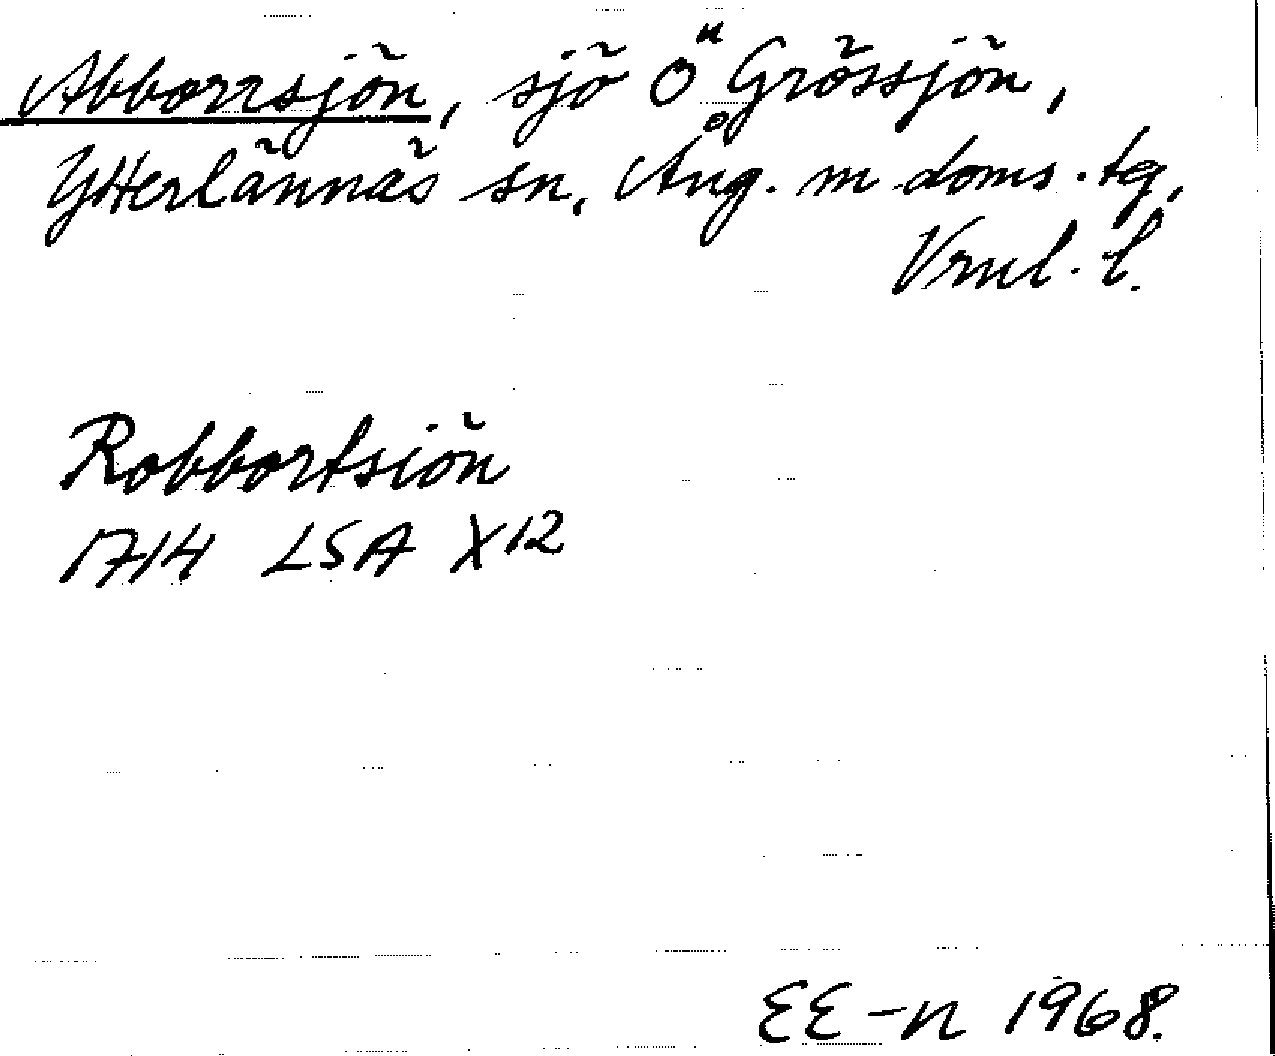 Abborrsjön, sjö Ö" Grössjön,
Ytterlännäs sn, Ång. m doms. tg,
Vrnl. l.
Robbortsiön
1714 LSA X12
EE-n 1968.